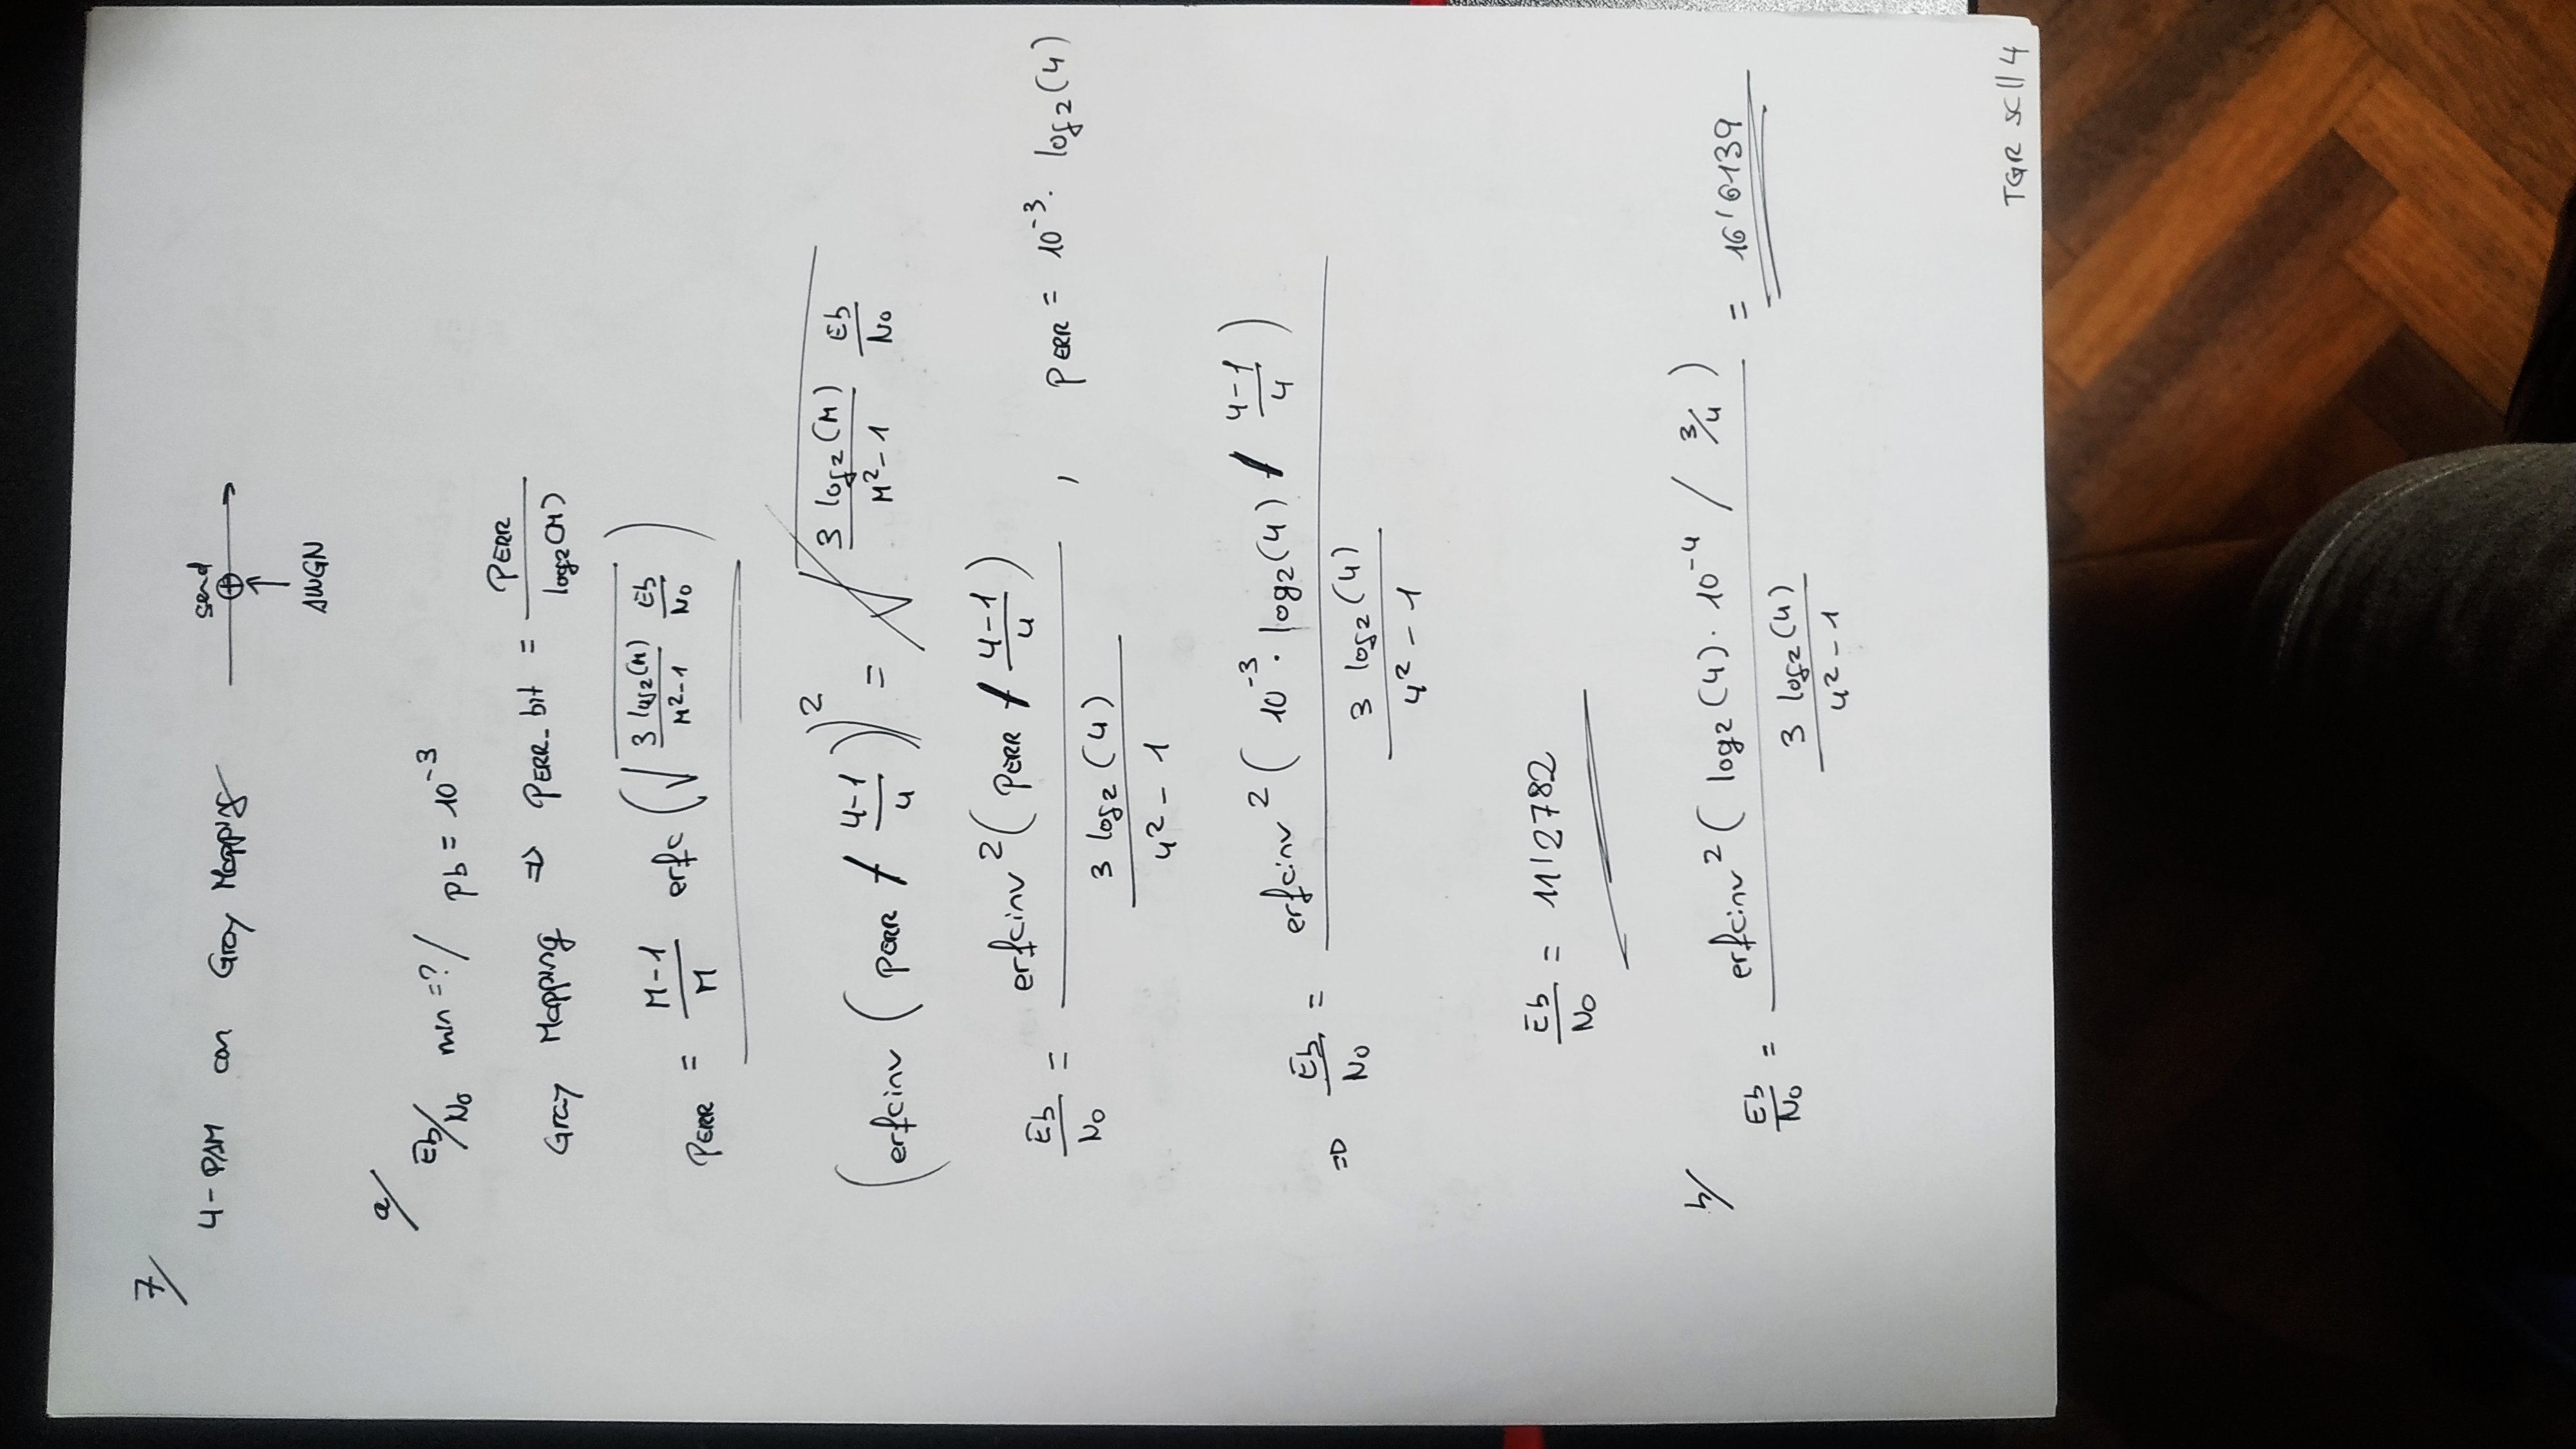 7/
4-PAM con Gray Mapping send ⊕ ↑ AWGN
a/
Eb/No min = ? / Pb = 10^-3
Gray Mapping => PERR_bit = PERR / log2(M)
PERR = (M-1)/M erfc(√((3 log2(M))/(M^2-1) Eb/No))
(erfcinv (PERR / (4-1)/4))^2 = (3 log2(M))/(M^2-1) Eb/No
Eb/No = erfcinv^2 (PERR / (4-1)/4) / ((3 log2(4))/(4^2-1)) , PERR = 10^-3 · log2(4)
=> Eb/No = erfcinv^2 (10^-3 · log2(4) / (4-1)/4) / ((3 log2(4))/(4^2-1))
Eb/No = 11'2782
b/ Eb/No = erfcinv^2 (log2(4) · 10^-4 / 3/4) / ((3 log2(4))/(4^2-1)) = 16'6139